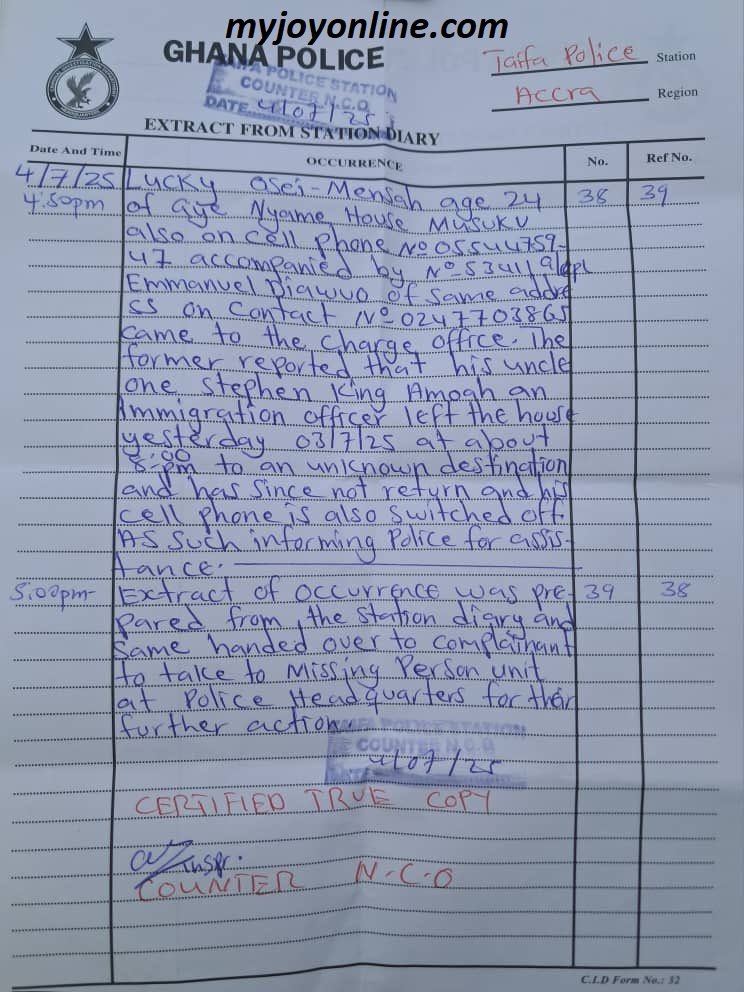 myjoyonline.com
GHANA POLICE
Taifa Police Station
Accra Region
TAIFA POLICE STATION
COUNTER N.C.O
DATE 4/07/25
EXTRACT FROM STATION DIARY
Date And Time OCCURRENCE No. Ref No.
4/7/25 Lucky Osei-Mensah age 24 38 39
4:50pm of Gye Nyame House Musuku
also on cell phone Nº 05544759-
47 accompanied by Nº 53411 g/cpl
Emmanuel of same addre
ss on contact Nº 0247703865
came to the charge office. The
former reported that his uncle
one Stephen King Amoah an
Immigration officer left the house
yesterday 03/7/25 at about
8:00
pm to an unknown destination
and has since not return and his
cell phone is also switched off.
As such informing Police for assis-
tance.
5:00pm- Extract of occurrence was pre- 39 38
pared from the station diary and
same handed over to complainant
to take to Missing Person unit
at Police Headquarters for their
further action.
TAIFA POLICE STATION
COUNTER N.C.O
DATE 4/07/25
CERTIFIED TRUE COPY
Inspr.
COUNTER N.C.O
C.I.D Form No.: 32